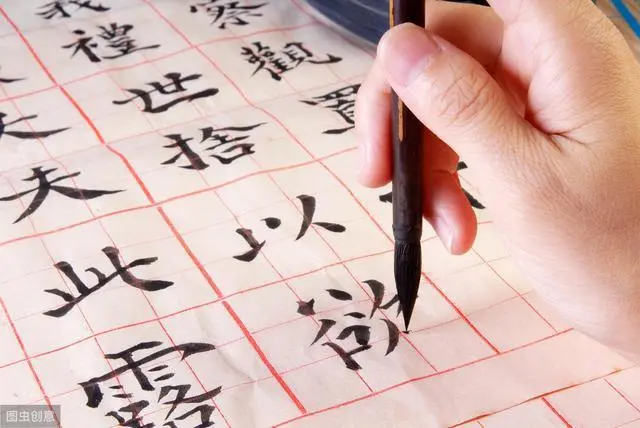 察觀
我禮世捨以
夫此露
图虫创意